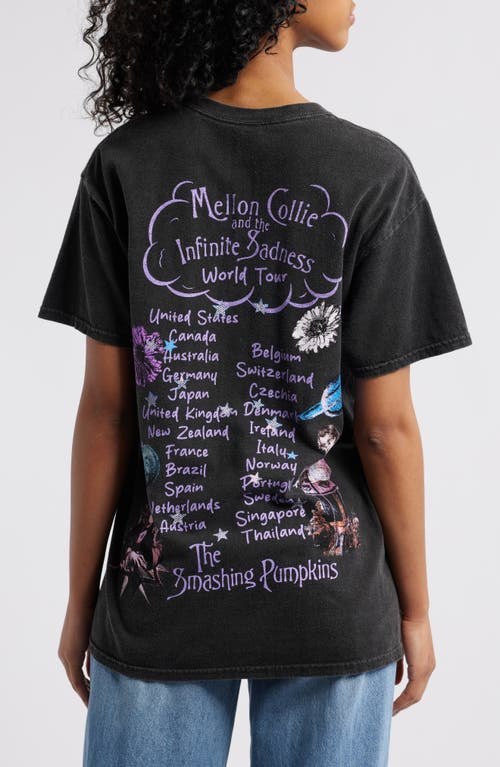 Mellon Collie
and the
Infinite Sadness
World Tour
United States
Canada
Australia
Germany
Japan
United Kingdom
New Zealand
France
Brazil
Spain
Netherlands
Austria
Belgium
Switzerland
Czechia
Denmark
Ireland
Italy
Norway
Portugal
Sweden
Singapore
Thailand
The
Smashing Pumpkins